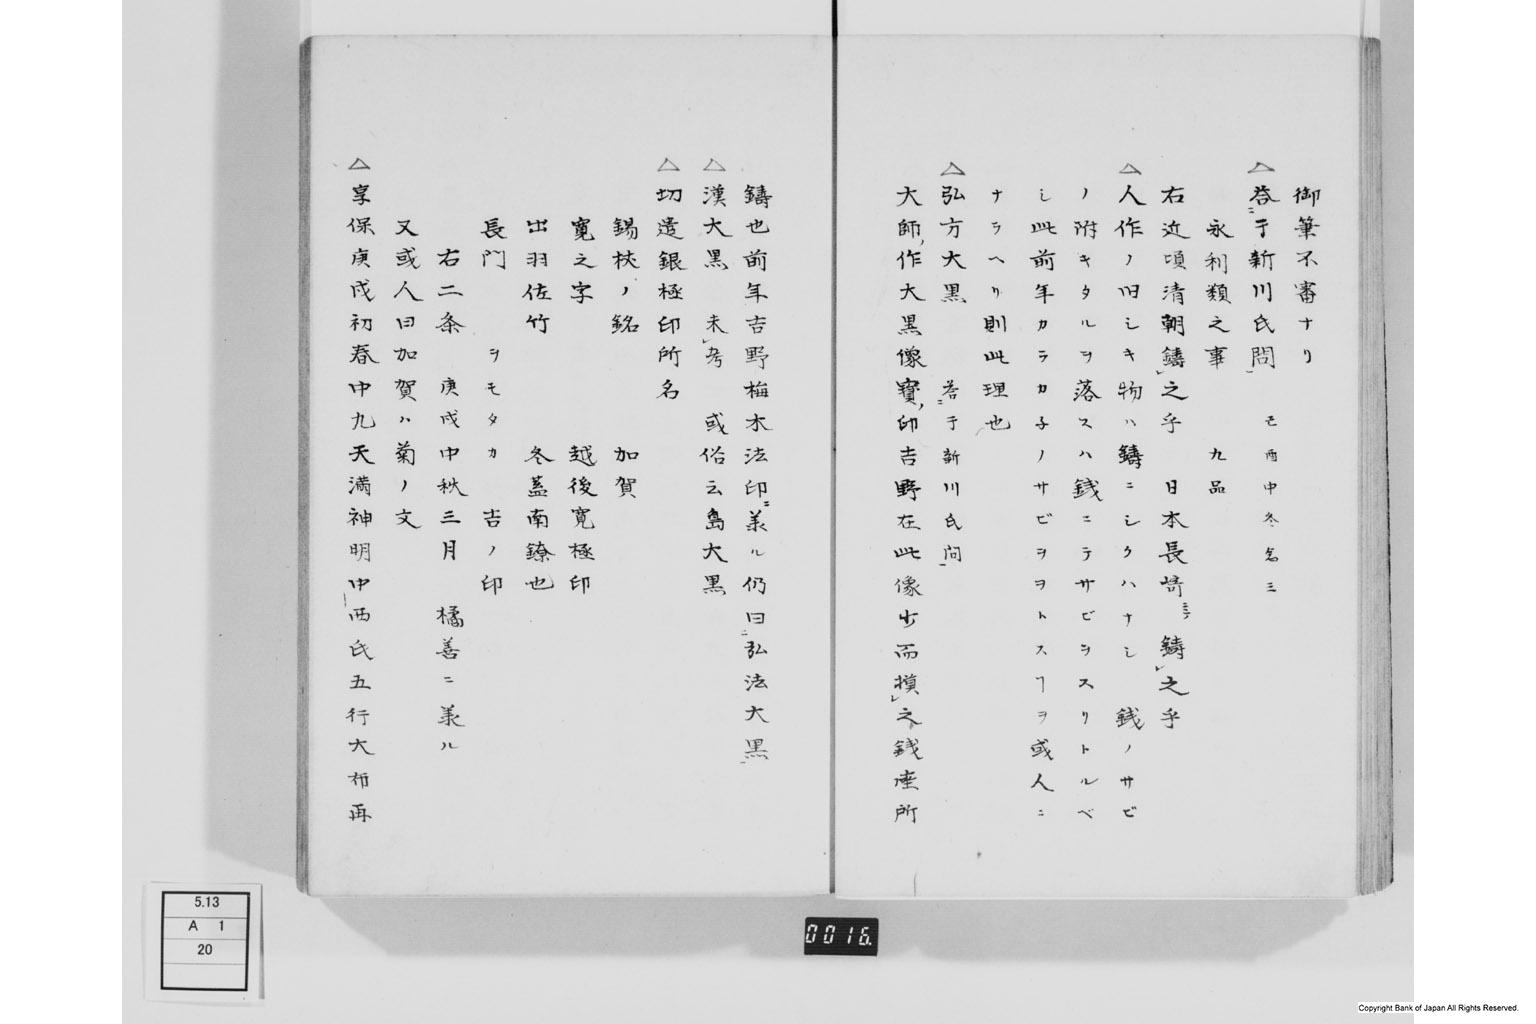 御筆不審ナリ
△答于新川氏問 己酉中冬念三
永利類之事 九品
右近頃清朝鋳之乎 日本長崎ニテ鋳之乎
△人作ノ旧シキ物ハ鋳ニシクハナシ 銭ノサビ
ノ附キタルヲ落スハ銭ニテサビヲスリトルベ
シ此前年カラカ子ノサビヲヲトスヿヲ或人ニ
ナラヘリ則此理也
△弘方大黒 答于新川氏问
大師作大黒像寳印吉野在此像少而摸之銭座所
鋳也前年吉野梅木法印ニ義ル仍曰弘法大黒
△漢大黒 未考 或俗云島大黒
△切遣銀極印所名
錫梜ノ銘 加賀
寛之字 越後寛極印
出羽佐竹 冬蓋南鐐也
長門 ヲモタカ 吉ノ印
右二条 庚戌中秋三月 橘善ニ義ル
又或人曰加賀ハ菊ノ文
△享保庚戌初春中九天満神明中西氏五行大布再
5.13
A 1
20
0016.
Copyright Bank of Japan All Rights Reserved.